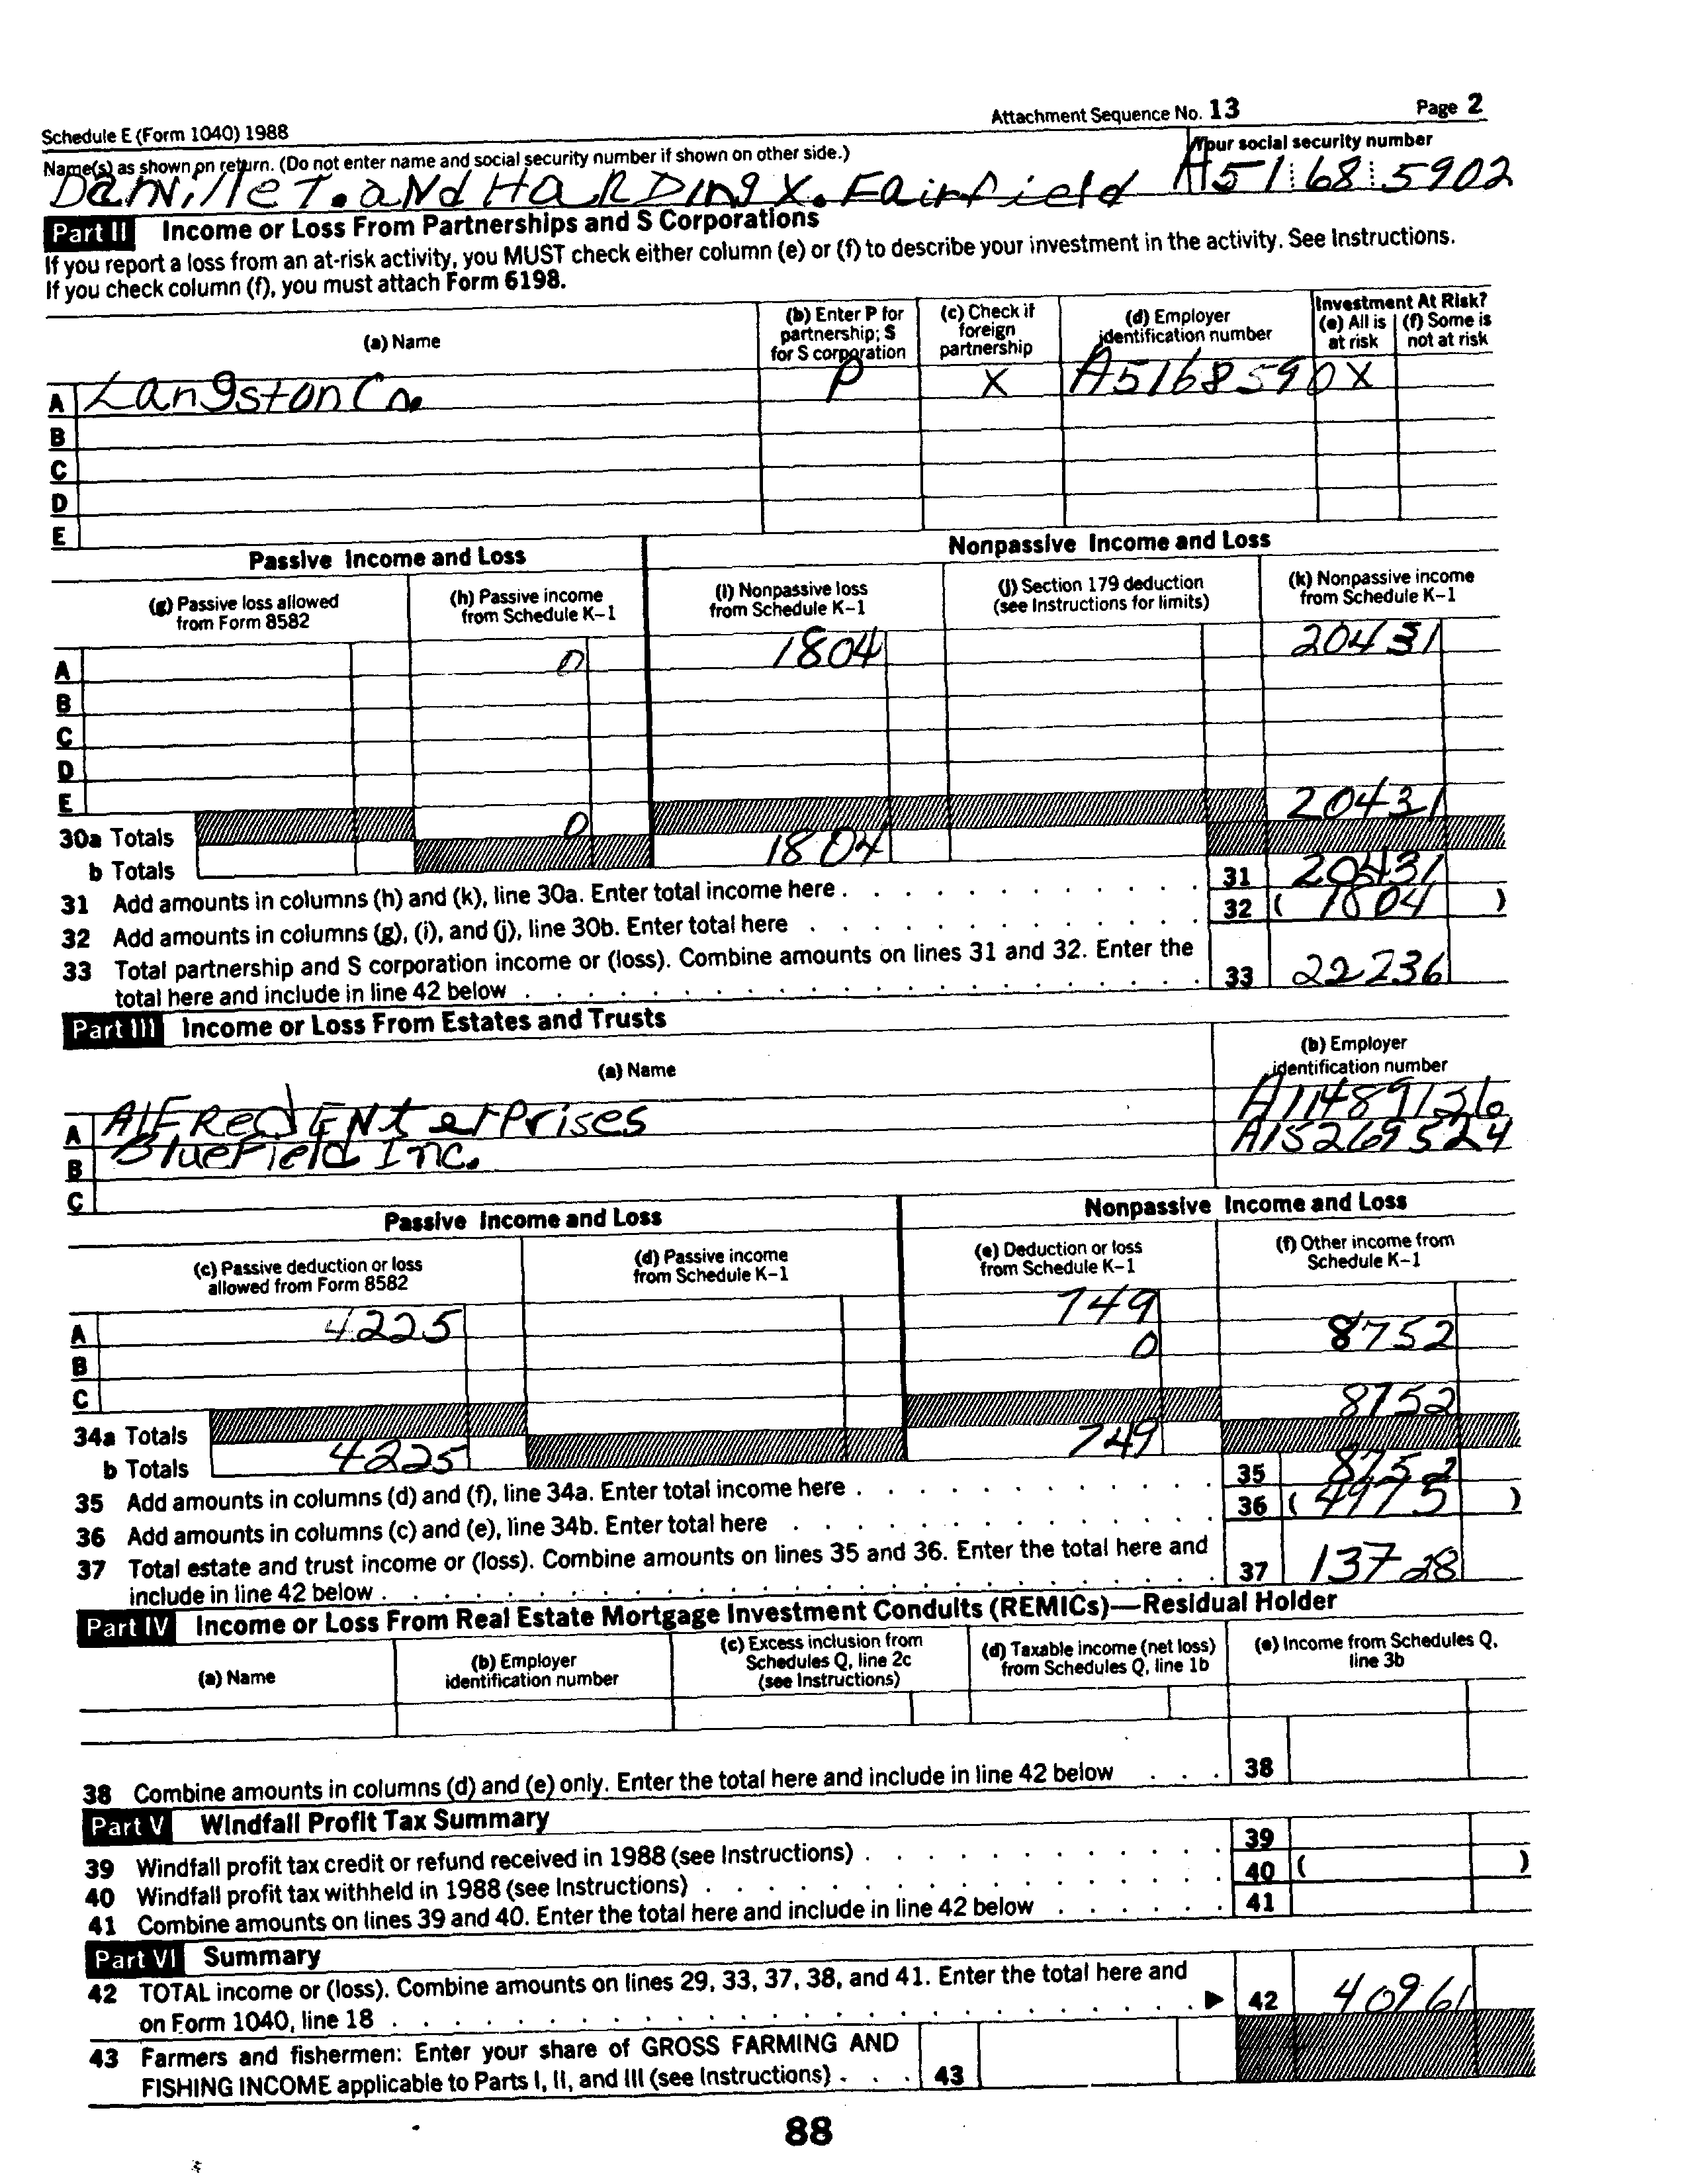 Schedule E (Form 1040) 1988 Attachment Sequence No. 13 Page 2
Name(s) as shown on return. (Do not enter name and social security number if shown on other side.) Your social security number
Danville T. and Harding X. Fairfield A51 68 5902
Part II Income or Loss From Partnerships and S Corporations
If you report a loss from an at-risk activity, you MUST check either column (e) or (f) to describe your investment in the activity. See Instructions.
If you check column (f), you must attach Form 6198.
(a) Name (b) Enter P for partnership; S for S corporation (c) Check if foreign partnership (d) Employer identification number Investment At Risk? (e) All is at risk (f) Some is not at risk
A Langston Co. P X A5168590 X
B
C
D
E
Passive Income and Loss Nonpassive Income and Loss
(g) Passive loss allowed from Form 8582 (h) Passive income from Schedule K–1 (i) Nonpassive loss from Schedule K–1 (j) Section 179 deduction (see Instructions for limits) (k) Nonpassive income from Schedule K–1
A 0 1804 20431
B
C
D
E
30a Totals 0 20431
b Totals 1804
31 Add amounts in columns (h) and (k), line 30a. Enter total income here 31 20431
32 Add amounts in columns (g), (i), and (j), line 30b. Enter total here 32 ( 1804 )
33 Total partnership and S corporation income or (loss). Combine amounts on lines 31 and 32. Enter the
total here and include in line 42 below 33 22236
Part III Income or Loss From Estates and Trusts
(a) Name (b) Employer identification number
A Alfred Enterprises A11489126
B Bluefield Inc. A15269524
C
Passive Income and Loss Nonpassive Income and Loss
(c) Passive deduction or loss allowed from Form 8582 (d) Passive income from Schedule K–1 (e) Deduction or loss from Schedule K–1 (f) Other income from Schedule K–1
A 4225 749
B 0 8752
C
34a Totals 8752
b Totals 4225 749
35 Add amounts in columns (d) and (f), line 34a. Enter total income here 35 8752
36 Add amounts in columns (c) and (e), line 34b. Enter total here 36 ( 4975 )
37 Total estate and trust income or (loss). Combine amounts on lines 35 and 36. Enter the total here and
include in line 42 below 37 13728
Part IV Income or Loss From Real Estate Mortgage Investment Conduits (REMICs)—Residual Holder
(a) Name (b) Employer identification number (c) Excess inclusion from Schedules Q, line 2c (see Instructions) (d) Taxable income (net loss) from Schedules Q, line 1b (e) Income from Schedules Q, line 3b
38 Combine amounts in columns (d) and (e) only. Enter the total here and include in line 42 below 38
Part V Windfall Profit Tax Summary
39 Windfall profit tax credit or refund received in 1988 (see Instructions) 39
40 Windfall profit tax withheld in 1988 (see Instructions) 40 ( )
41 Combine amounts on lines 39 and 40. Enter the total here and include in line 42 below 41
Part VI Summary
42 TOTAL income or (loss). Combine amounts on lines 29, 33, 37, 38, and 41. Enter the total here and
on Form 1040, line 18 ▶ 42 40961
43 Farmers and fishermen: Enter your share of GROSS FARMING AND
FISHING INCOME applicable to Parts I, II, and III (see Instructions) 43
88